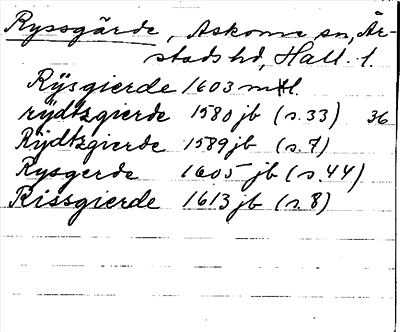 Ryssgärde, Askome sn, År-
stads hd, Hall. l.
Rÿsgierde 1603 mtl.
rÿdtzgierde 1580 jb (s. 33) 36
Rÿdtzgierde 1589 jb (s. 7)
Rysgerde 1605 jb (s. 44)
Rissgierde 1613 jb (s. 8)